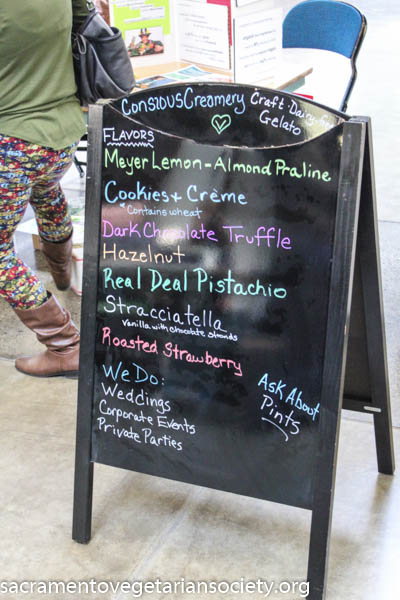 ConsiousCreamery Craft·Dairy-free
Gelato
FLAVORS
Meyer Lemon-Almond Praline
Cookies + Crème
*Contains wheat
Dark Chocolate Truffle
Hazelnut
Real Deal Pistachio
Stracciatella
Vanilla with chocolate strands
Roasted Strawberry
We Do:
Weddings
Corporate Events
Private Parties
Ask About
Pints
sacramentovegetariansociety.org